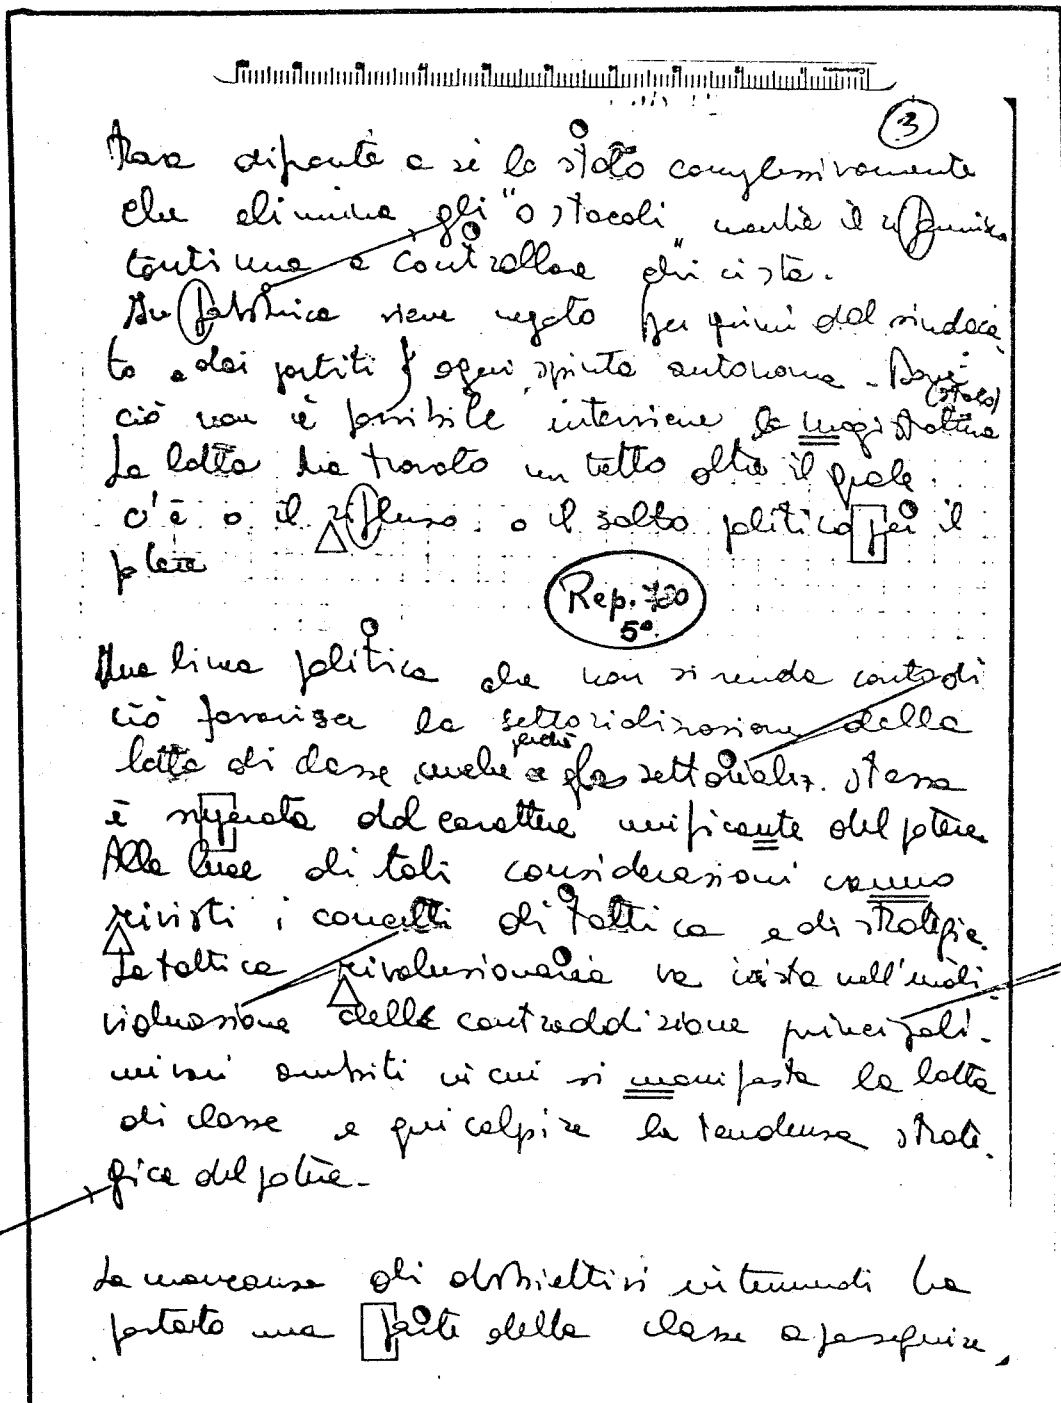 3
trova difronte a sè lo stato complessivamente
che elimina gli "ostacoli" mentre il
continua a controllare chi ci sta.
In fabbrica viene negato per primi dal sindaca
to e dai partiti ogni spinta autonoma. Dove
(stato)
ciò non è possibile interviene la magistratura
La lotta ha trovato un tetto oltre il quale
c'è o il riflusso o il salto politico per il
potere
Rep. 720
5°
Una linea politica che non si renda conto di
ciò favorisce la settorializzazione della
perchè
lotta di classe anche la settorializ. stessa
è superata dal carattere unificante del potere
Alla luce di tali considerazioni vanno
rivisti i concetti di tattica e di strategia.
La tattica rivoluzionaria va vista nell'indi-
viduazione delle contraddizione principali.
nei vari ambiti in cui si manifesta la lotta
di classe e qui colpire la tendenza strate.
gica del potere.
La mancanza di obbiettivi intermedi ha
portato una parte della classe a perseguire